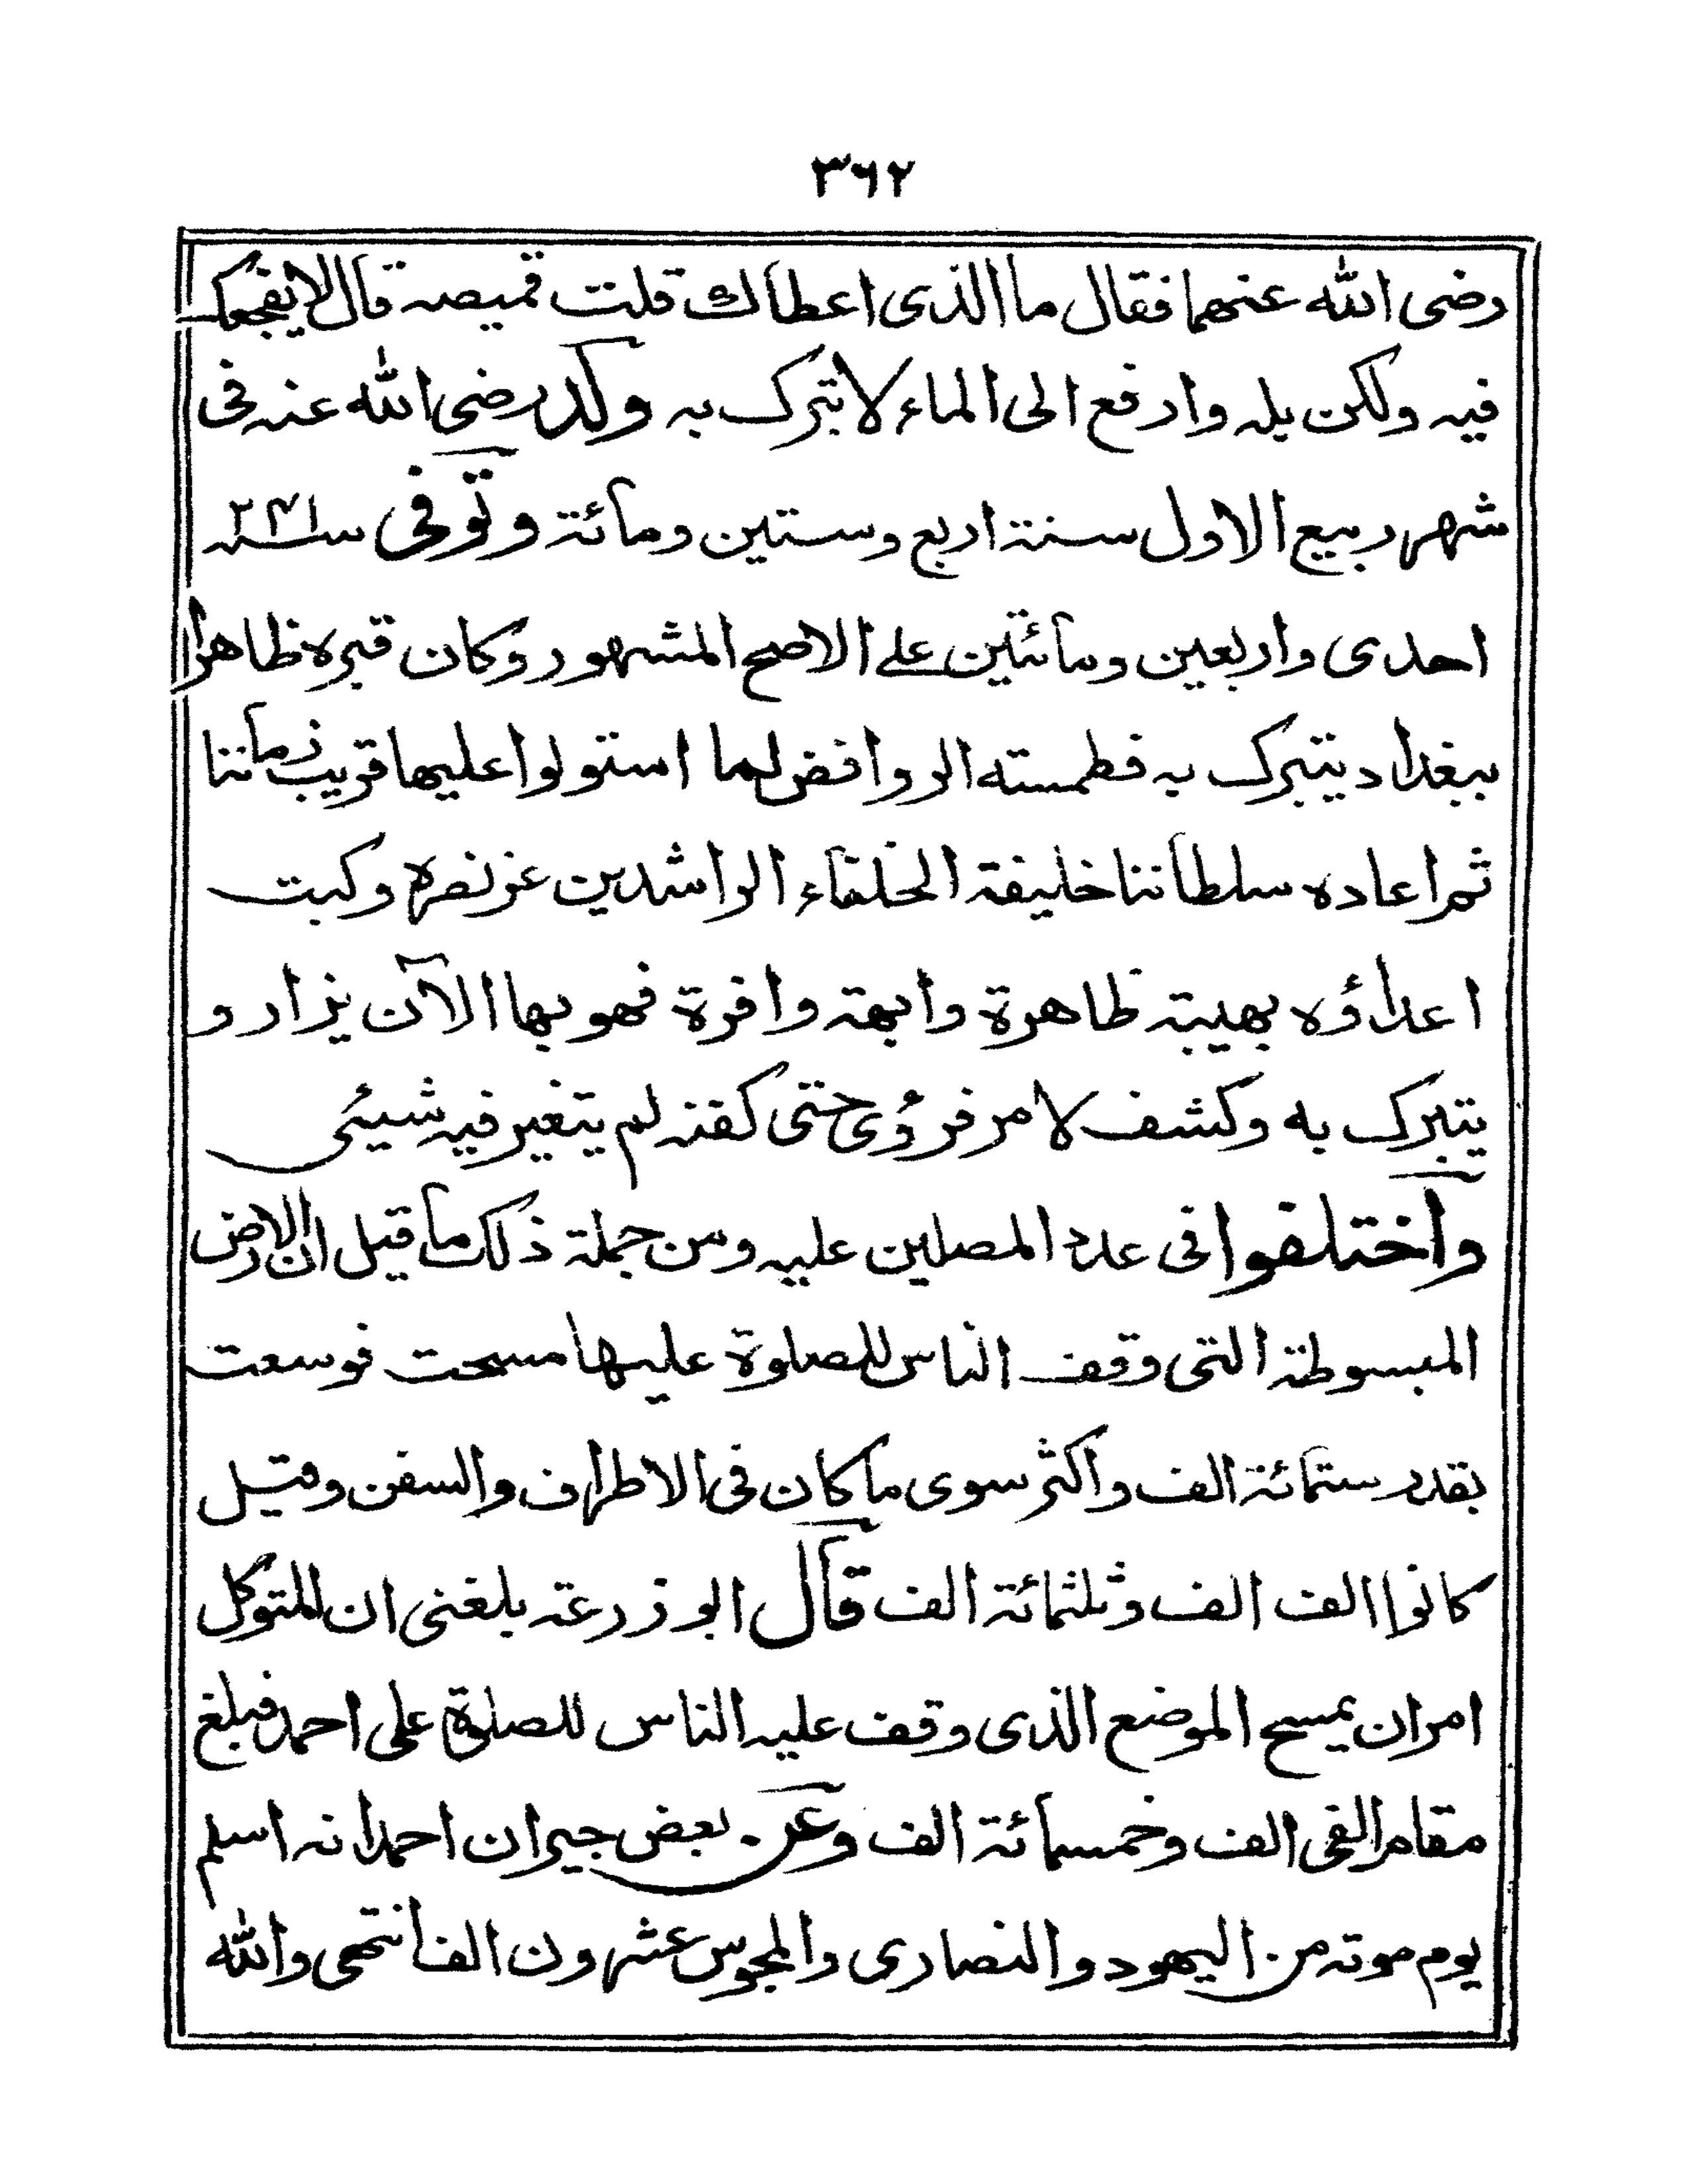 ٣٦٢
رضی الله عنهما فقال ما الذی اعطاك قلت قمیصه قال لا یفجعک
فیه ولکن بله وارفع الی الماء لا تبرک به ولد رضی الله عنه فی
شهر ربیع الاول سنة اربع وستین ومائة وتوفی سنه ٢٤١
احدی واربعین ومائتین علی الاصح المشهور وکان قبره ظاهرا
ببغداد یتبرک به فطمسته الروافض لما استولوا علیها قریب زماننا
ثم اعاده سلطاننا خلیفة الخلفاء الراشدین عز نصره وکبت
اعداؤه بهیبة ظاهرة وابهة وافرة فهو بها الآن یزار و
یتبرک به وکشف لامر فرؤی حتی کفنه لم یتغیر فیه شیئی
واختلفوا فی عدد المصلین علیه ومن جملة ذلک ما قیل ان الارض
المبسوطة التی وقف الناس للصلوة علیها مسحت فوسعت
بقدر ستمائة الف واکثر سوی ما کان فی الاطراف والسفن وقیل
کانوا الف الف وثلثمائة الف قال ابو زرعة بلغنی ان المتوکل
امر ان یمسح الموضع الذی وقف علیه الناس للصلوة علی احمد فبلغ
مقام الفی الف وخمسمائة الف وعن بعض جیران احمد انه اسلم
یوم موته من الیهود والنصاری والمجوس عشرون الفا انتهی والله